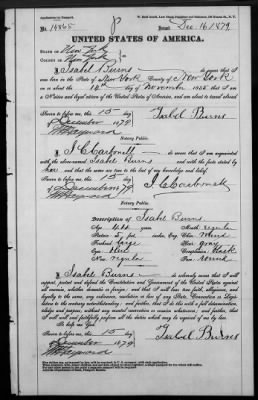 No. 14865
Issued Dec. 16, 1879
UNITED STATES OF AMERICA.
STATE OF New York
COUNTY OF New York
I, Isabel Burns do swear that I was
born in the State of New York County of New York
on or about the day of November 1835 that I am
a Native and loyal citizen of the United States of America, and am about to travel abroad.
Sworn to before me, this 15 day Isabel Burns
of December 1879
Notary Public.
I, do swear that I am acquainted
with the above-named Isabel Burns and with the facts stated by
her and that the same are true to the best of my knowledge and belief.
Sworn to before me, this 15 day
of December 1879
Notary Public.
Description of Isabel Burns
Age 44 years Mouth regular
Stature 5 ft. inches, Eng. Chin
Forehead large Hair gray
Eyes Complexion
Nose regular Face round
I, Isabel Burns do solemnly swear that I will
support, protect and defend the Constitution and Government of the United States against
all enemies, whether domestic or foreign; and that I will bear true faith, allegiance, and
loyalty to the same, any ordinance, resolution or law of any State, Convention or Legislature
to the contrary notwithstanding; and further, that I do this with a full determination,
pledge and purpose, without any mental reservation or evasion whatsoever; and further, that
I will well and faithfully perform all the duties which may be required of me by law.
So help me God.
Sworn to before me, this 15 day Isabel Burns
of December 1879
Notary Public.